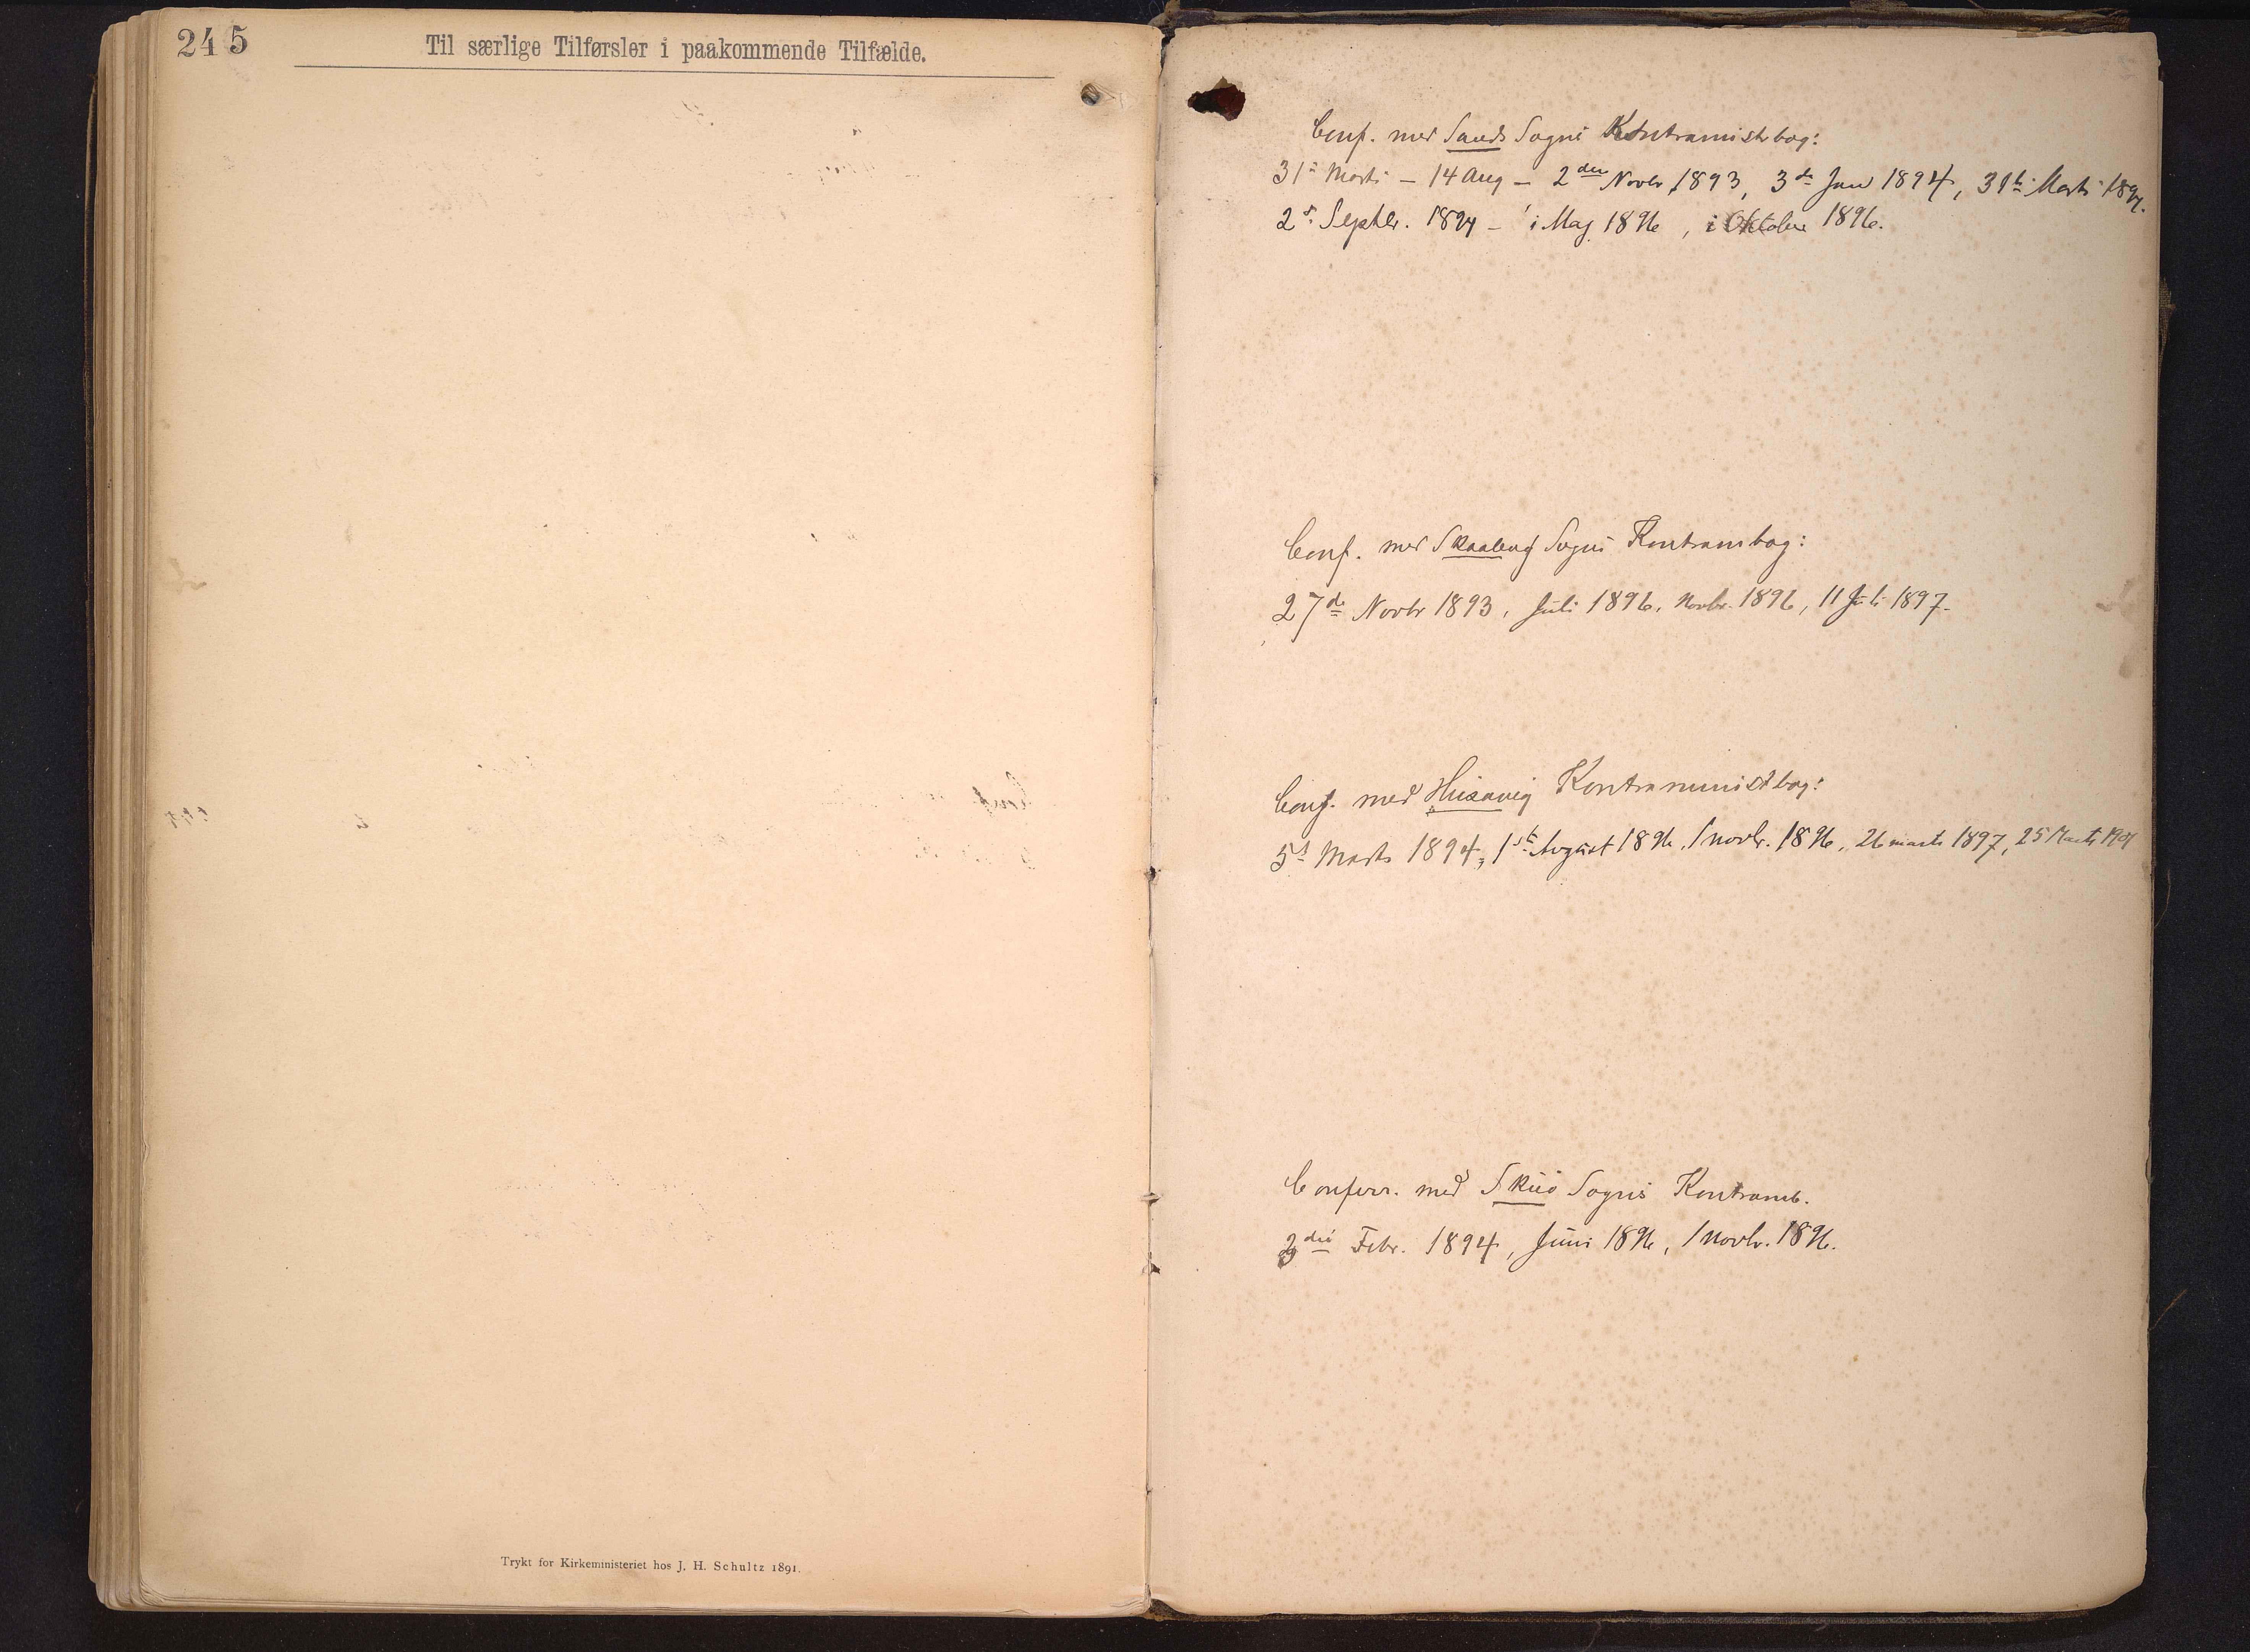 245
Til særlige Tilførsler i paakommende Tilfælde.
Trykt for Kirkeministeriet hos J. H. Schultz 1891.
Conf. med Sands Sogns Kontraministbog:
31te Marts – 14 Aug – 2den Novbr 1893, 3de Jan 1894, 31te Marts 1894.
2d. Septbr. 1894 – i Maj 1896, i Oktober 1896.
Conf. med Skaalevig Sogns Kontrambog:
27de Novbr 1893, Juli 1896, Novbr. 1896, 11 Juli 1897.
Conf. med Husavig Kontraministbog:
5te Marts 1894, 1ste August 1896, 1 novbr. 1896, 26 marts 1897, 25 Marts
Conferr. med Skuø Sogns Kontramb.
Febr. 1894, Juni 1896, 1 Novbr. 1896.